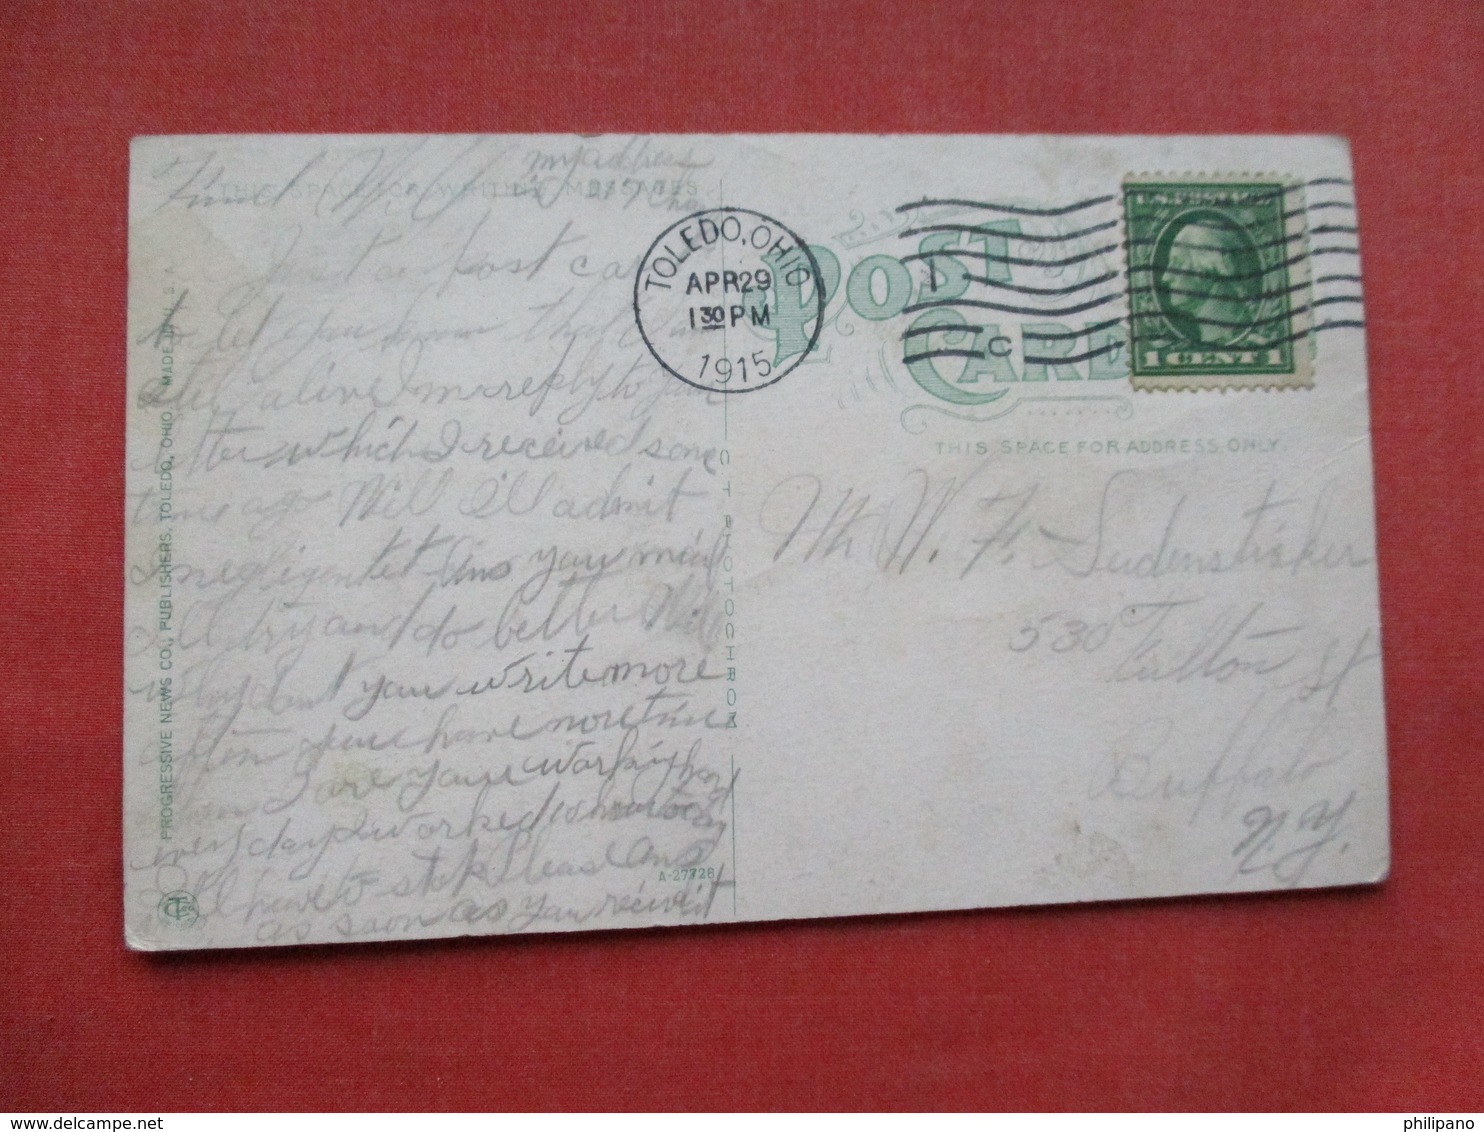 my address
Friend
THIS SPACE FOR WRITING MESSAGES
Just a post card
to let you know that I am
still alive In reply to your
letter which I received some
time ago Will I'll admit
I negligent
I'll try and do better Will
Why dont you write more
often you have more time
than I are you working hard
every day I worked
I have to stop
as soon as you receive it
PROGRESSIVE NEWS CO., PUBLISHERS, TOLEDO, OHIO MADE IN U. S. A.
C T PHOTOCHROM
A-27728
TOLEDO, OHIO
APR 29
1 30 PM
1915
1
C
POST CARD
U.S. POSTAGE
1 CENT 1
THIS SPACE FOR ADDRESS ONLY.
Mr W. F. Sudensticker
530 Fulton St
Buffalo
N.Y.
philipano